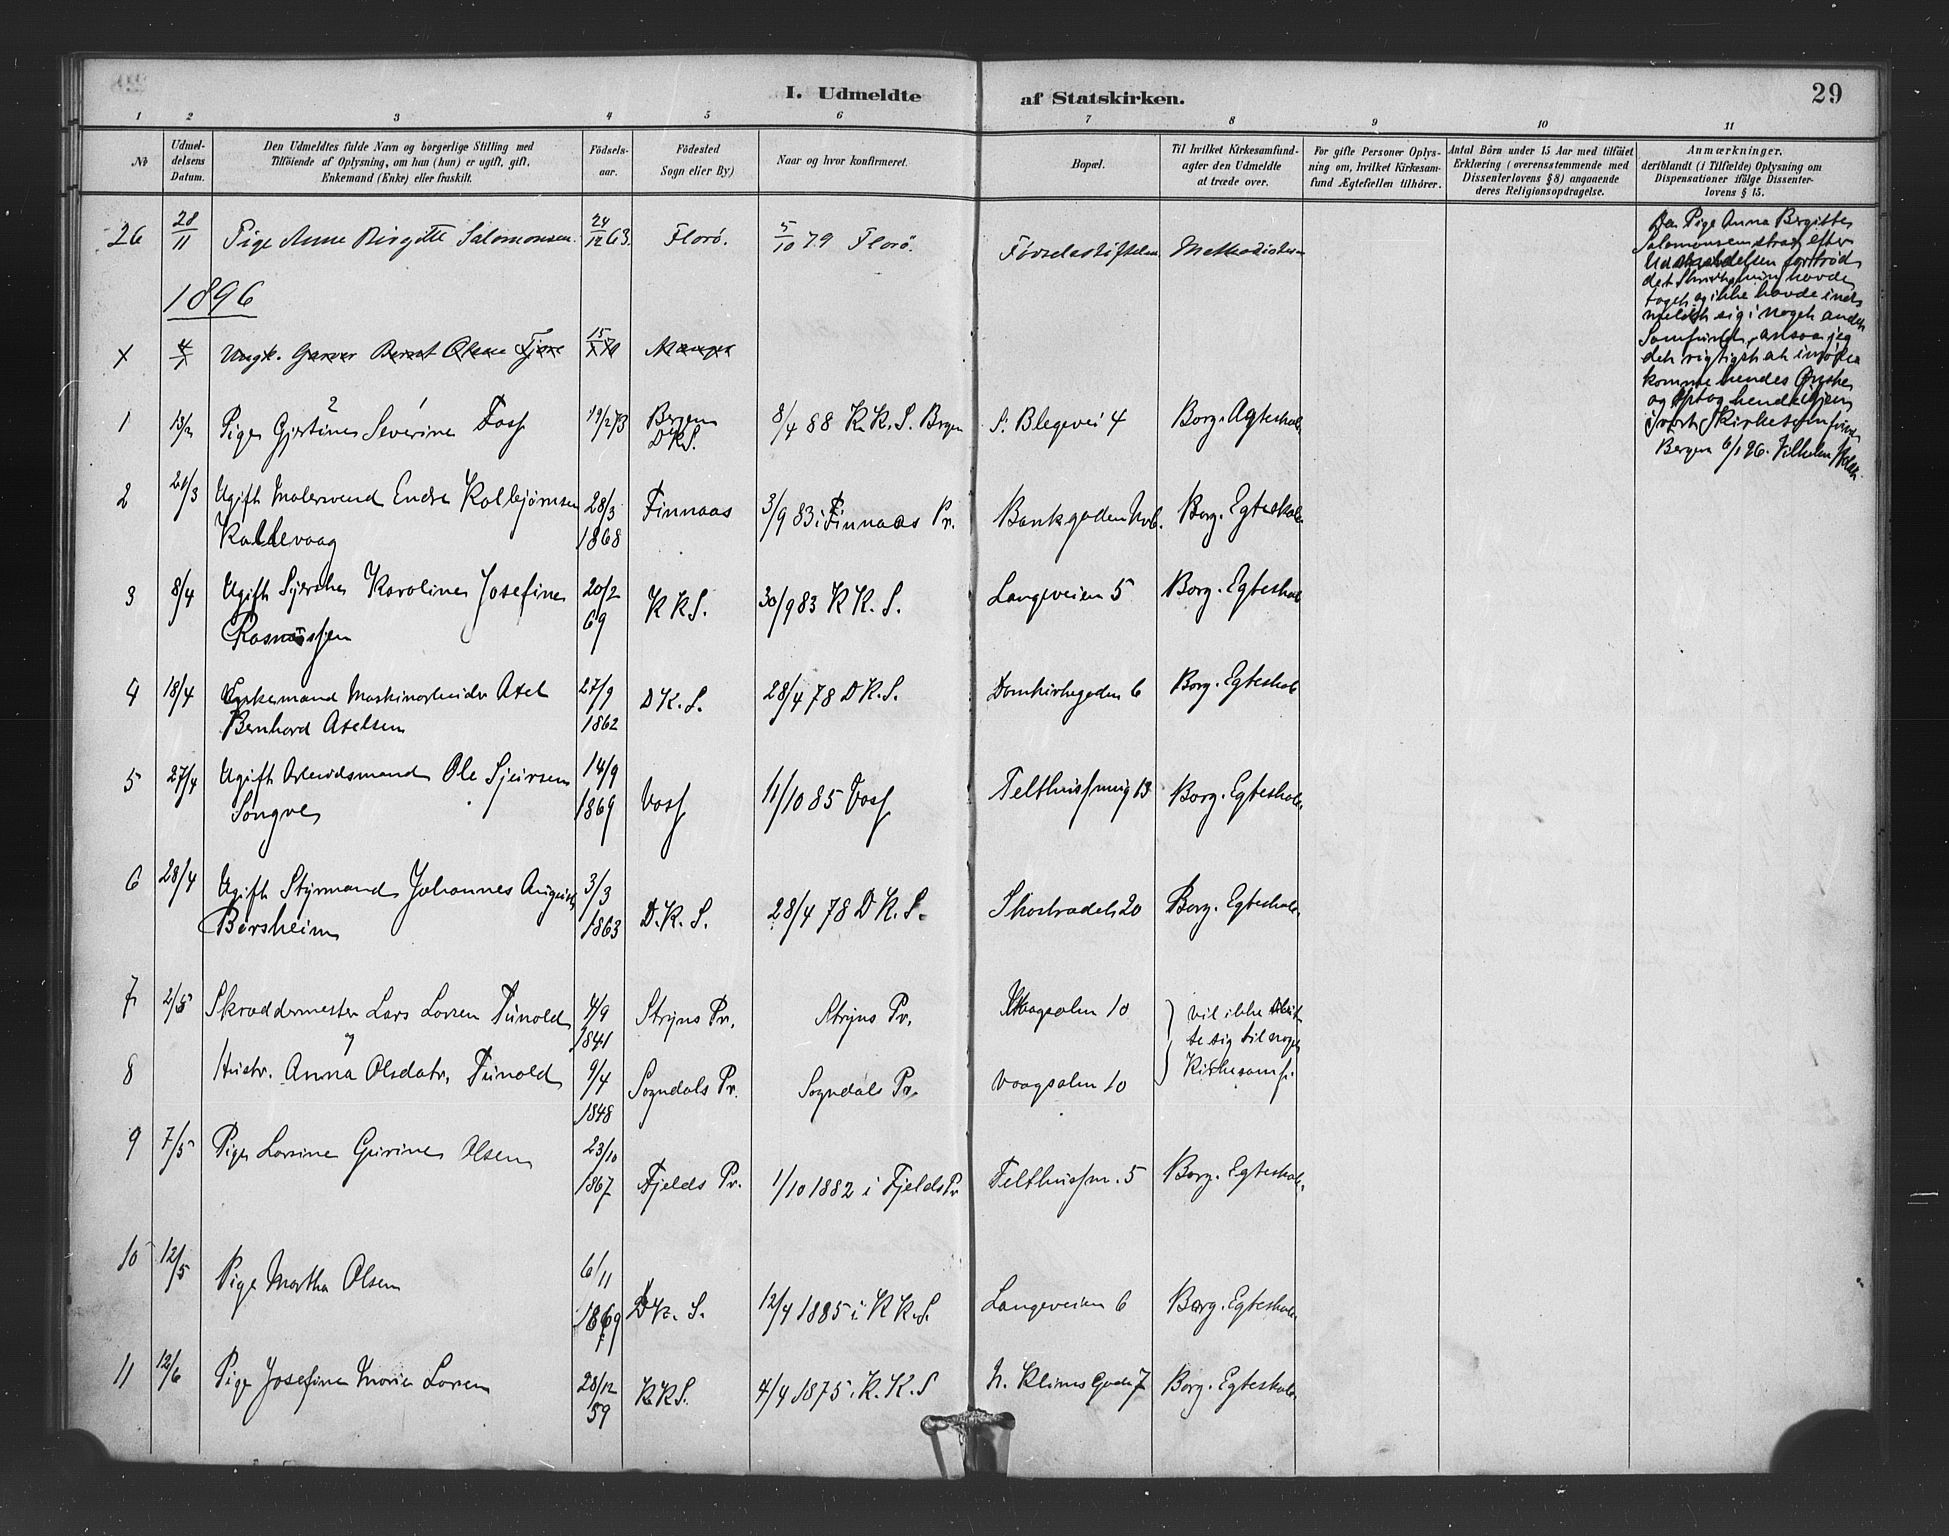 I. Udmeldte af Statskirken. 29
1 2 3 4 5 6 7 8 9 10 11
No
Udmel-
delsens
Datum.
Den Udmeldtes fulde Navn og borgerlige Stilling med
Tilföiende af Oplysning, om han (hun) er ugift, gift,
Enkemand (Enke) eller fraskilt.
Födsels-
aar.
Födested
Sogn eller By)
Naar og hvor konfirmeret.
Bopæl.
Til hvilket Kirkesamfund-
agter den Udmeldte
at træde over.
For gifte Personer Oplys-
ning om, hvilket Kirkesam-
fund Ægtefællen tilhörer.
Antal Börn under 15 Aar med tilföiet
Erklæring (overensstemmende med
Dissenterlovens § 8) angaaende
deres Religionsopdragelse.
Anmærkninger,
deriblandt (i Tilfælde) Oplysning om
Dispensationer ifölge Dissenter-
lovens § 15.
26 28/11 Pige Anne Birgitte Salomonsen 24/12 63. Florö. 5/10 79 Florö. Fövselsstiftelsen Methodisterne
Da Pige Anna Birgitte
Salomonsen strax efter
Udmeldelsen fortröd
det Skridt, hun havde
taget og ikke havde ind-
meldt sig i noget andet
Samfund, ansaa jeg
det rigtigst at imöde-
komme hendes Önske
og optog hende igjen
i vort Kirkesamfund
Bergen 6/1 96. Vilhelm
1896
X 4/X Ungk. Garver Bernt Olsen Fjære 15/X Manger
1 13/2 Pige Gjertine Severine Foss 19/2 73 Bergen 8/4 88 K. K. S. Bergen S. Blegevei 4 Borg. Ægteskab
D.K.S.
2 21/3 Ugift Malersvend Endre Kolbejørnsen 28/3 Finnaas 3/9 83 i Finnaas Pr. Bankgaden Borg. Egteskab
Kallevaag 1868
3 8/4 Ugift Syerske Karoline Josefine 20/2 K K S. 30/9 83 K K. S. Langeveien 5 Borg. Egteskab
69
4 18/4 Enkemand Maskinarbeider Axel 27/9 D K. S. 28/4 78 D K. S. Domkirkegaden 6 Borg. Egteskab
Bernhard Axelsen 1862
5 27/4 Ugift Arbeidsmand Ole Sjursen 14/9 Voss 11/10 85 Voss Telthussmug 13 Borg. Egteskab
Songve 1869
6 28/4 Ugift Styrmand Johannes August 3/3 D. K. S. 28/4 78 D K. S. Skostrædet 20 Borg. Egteskab.
Børsheim 1863
7 2/5 Skræddermester Lars Larsen Tunold 4/9 Stryns Pr. Stryns Pr. Vaagsalm 10 vil ikke slut-
og 1841 te sig til noget
8 Hustr. Anna Olsdatr. Tunold 9/4 Sogndals Pr. Sogndals Pr. Vaagsalm 10 Kirkesamf.
1848
9 7/5 Pige Larsine Gurine Olsen 23/10 Fjelds Pr. 1/10 1882 i Fjelds Pr Telthussm. 5 Borg. Egteskab.
1867
10 12/5 Pige Martha Olsen 6/11 D K. S. 12/4 1885 i K K. S. Langeveien 6 Borg. Egteskab
1869
11 12/6 Pige Josefine Marie Larsen 28/12 K K S. 4/4 1875 i K. K. S N. Klims Gade 7 Borg. Egteskab
59